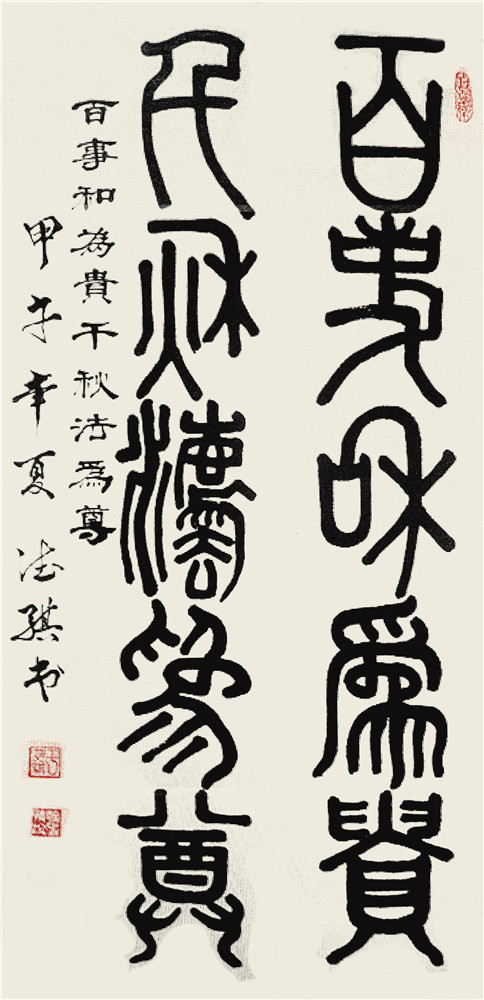 百事和為貴
千秋灋為尊
百事和為貴千秋法為尊
甲午年夏 德骐书